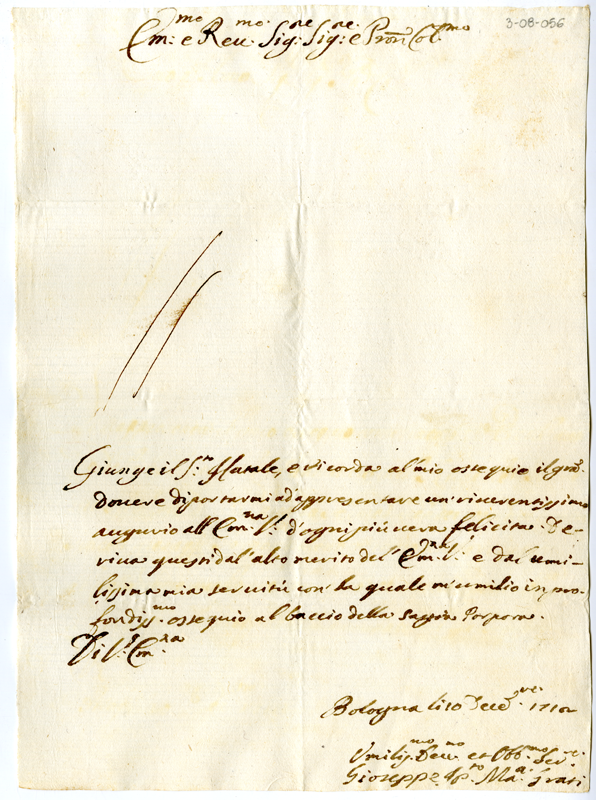 3-08-056
Em:mo e Reu:mo Sig:re Sig:re e Pron Col:mo
Giunge il S:to Natale, e ricorda al mio ossequio il
douere di portarmi ad appresentare un riuerentissimo
augurio all' Em:za V: d'ogni più uera felicità. De-
riua questi dal' alto merito del' Em:za V: e dal' umi-
lissima mia seruitù con la quale m'umilio in pro-
fondiss:mo ossequio al baccio della sagra Porpora.
Di V: Em:za
Bologna li 10 Decē:bre 1710
Umiliss:mo Deu:mo et Obb:mo Ser:re
Gioseppe Ma:a Grati